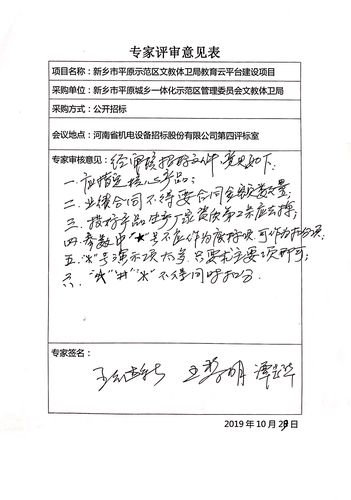 专家评审意见表
项目名称：新乡市平原示范区文教体卫局教育云平台建设项目
采购单位：新乡市平原城乡一体化示范区管理委员会文教体卫局
采购方式：公开招标
会议地点：河南省机电设备招标股份有限公司第四评标室
专家审核意见：经审核招标文件，意见如下：
一.应指定核心产品；
二.业绩合同不得要合同金额数量；
三.投标产品生产厂家资质第2条应去掉；
四.参数中"★"号不应作为废标项，可作为扣分项；
五."※"号演示项太多，只要求主要项即可；
六."★""#""※"不能同时扣分．
专家签名：
2019年10月29日